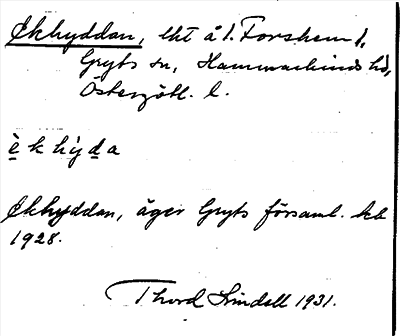 Ekhyddan, lht å 1. Forshem 1,
Gryts sn, Hammarkinds hd,
Östergötl. l.
è k hỳ d a
Ekhyddan, äger Gryts församl. kb
1928.
Thord Lindell 1931.